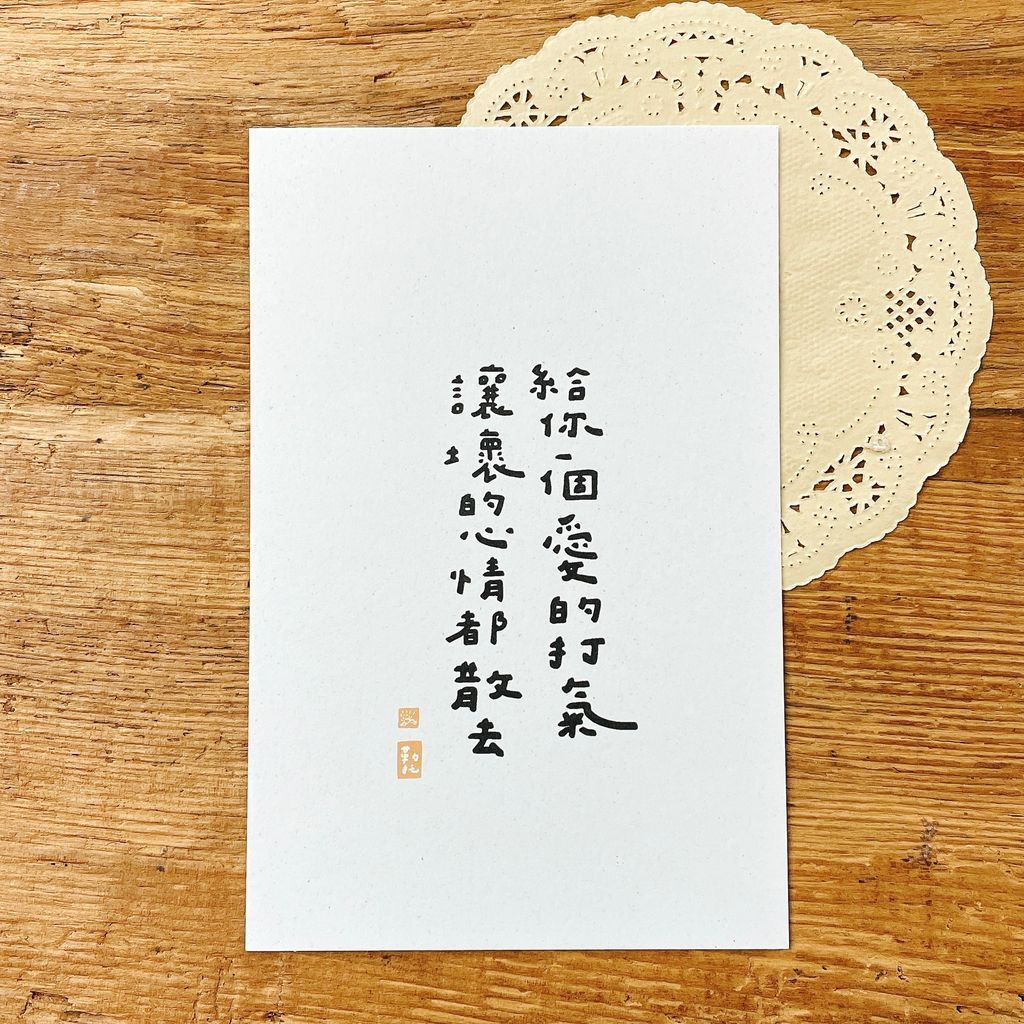 給你一個愛的打氣
讓壞的心情都散去